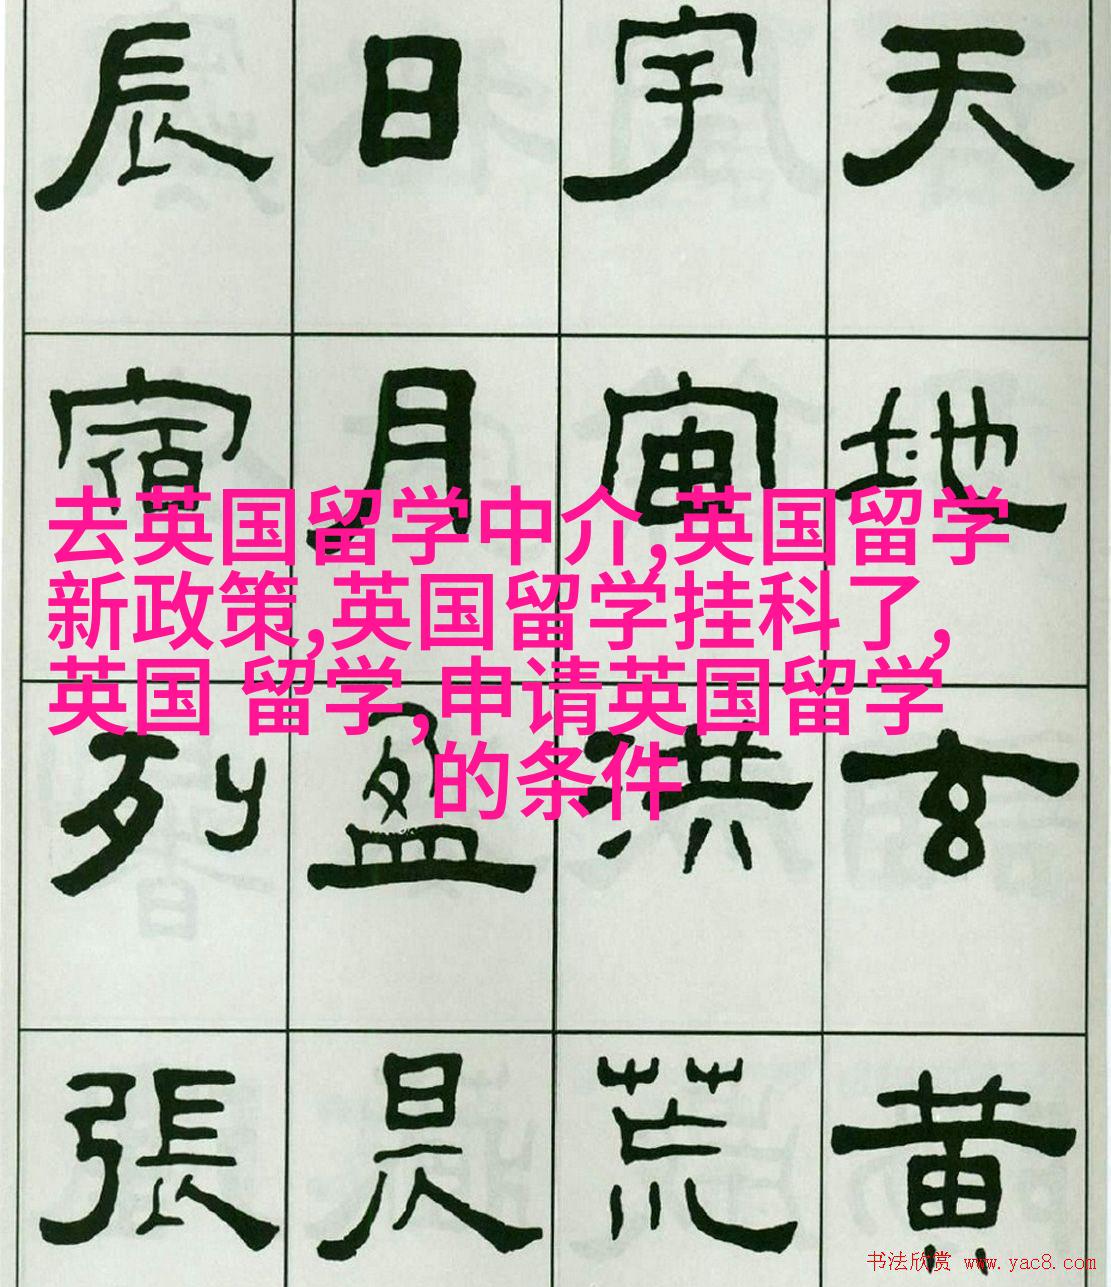 天地玄黄
宇宙洪荒
日月盈昃
辰宿列張
去英国留学中介,英国留学
新政策,英国留学挂科了,
英国 留学,申请英国留学
的条件
书法欣赏 www.yac8.com